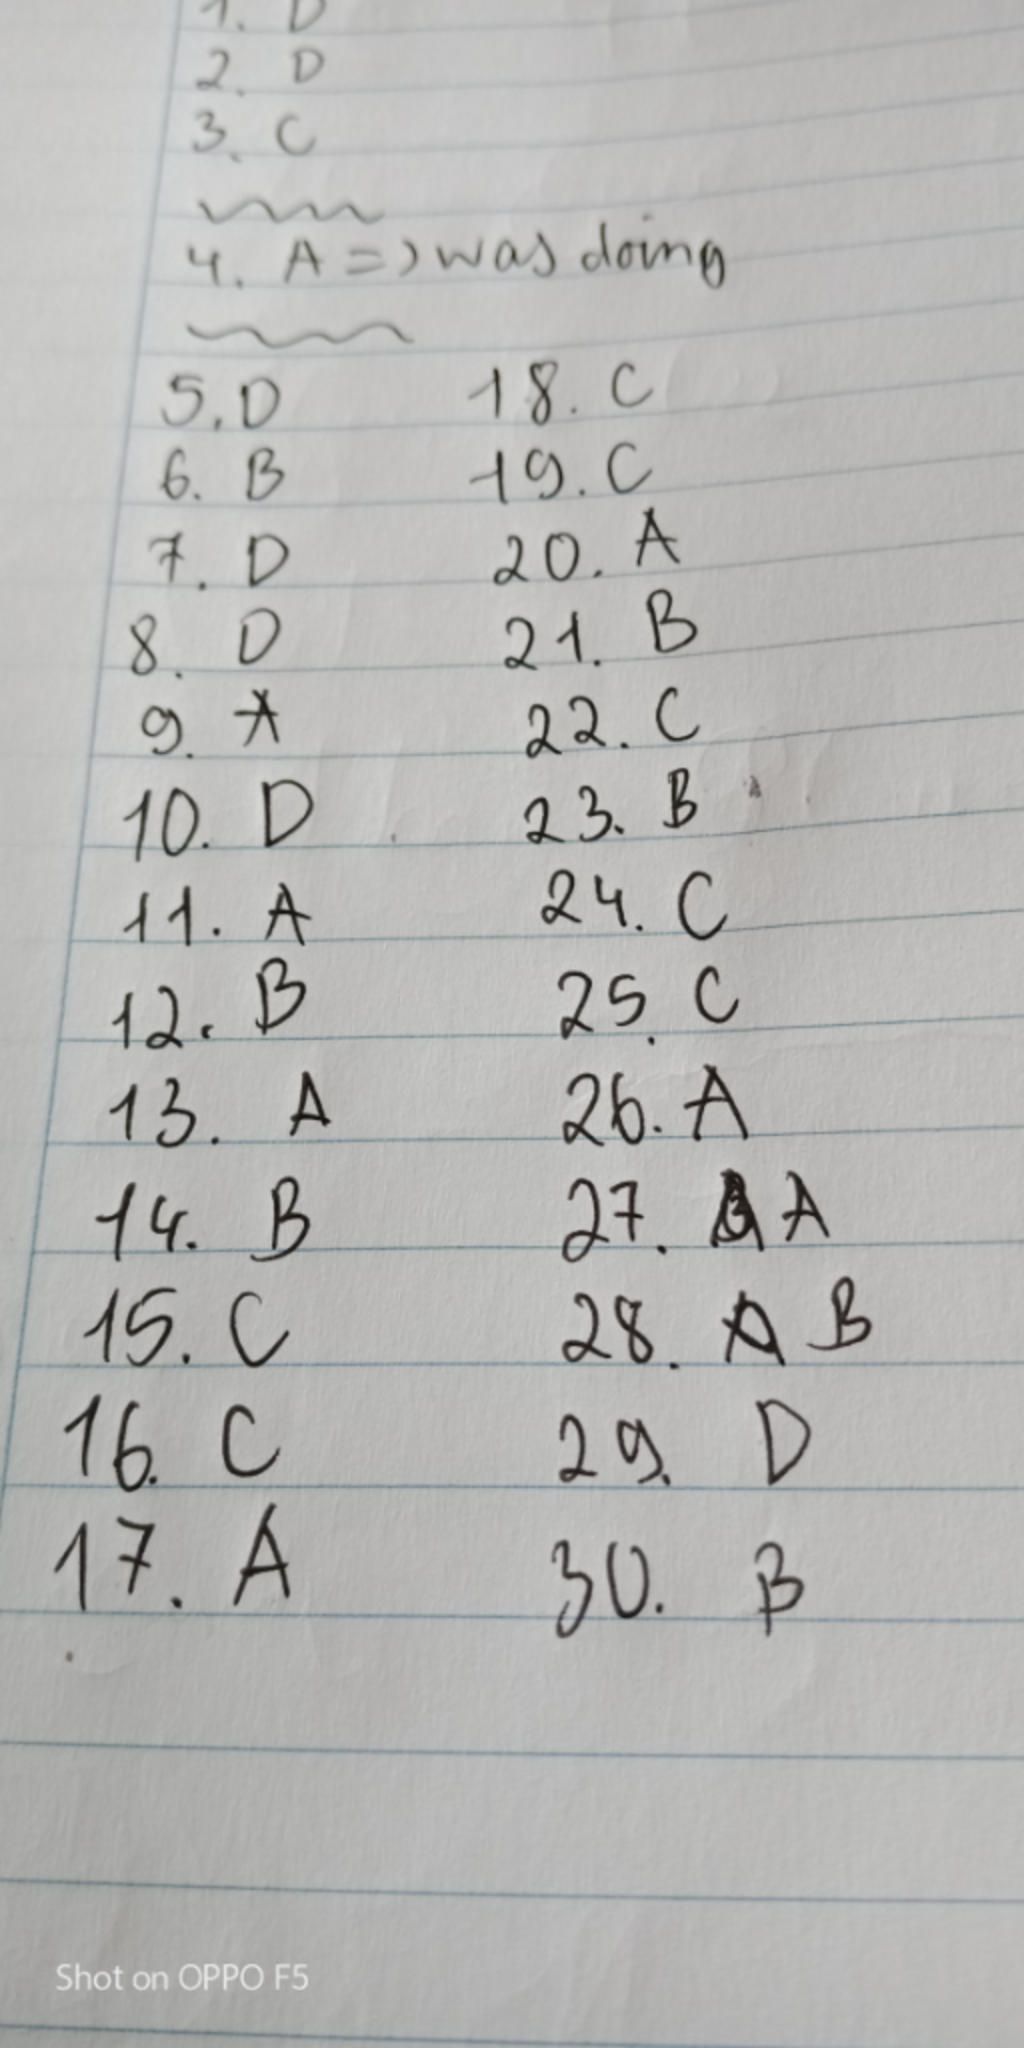 1. D
2. D
3. C
4. A => was doing
5. D
6. B
7. D
8. D
9. A
10. D
11. A
12. B
13. A
14. B
15. C
16. C
17. A
18. C
19. C
20. A
21. B
22. C
23. B
24. C
25. C
26. A
27. A
28. B
29. D
30. B
Shot on OPPO F5